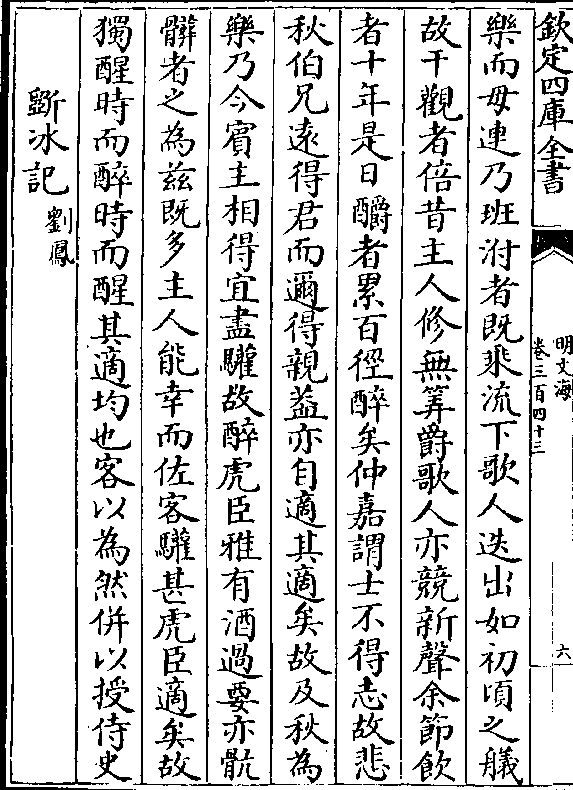 欽定四庫全書
明文海
卷三百四十三
六
樂而毋連乃班泭者既乘流下歌人迭出如初頃之艤
故干觀者倍昔主人修無筭爵歌人亦競新聲余節飲
者十年是日釂者累百徑醉矣仲嘉謂士不得志故悲
秋伯兄遠得君而邇得親葢亦自適其適矣故及秋為
樂乃今賓主相得宜盡驩故醉虎臣雅有酒過要亦骯
髒者之為兹既多主人能幸而佐客驩甚虎臣適矣故
獨醒時而醉時而醒其適均也客以為然併以授侍史
斲冰記
劉鳳